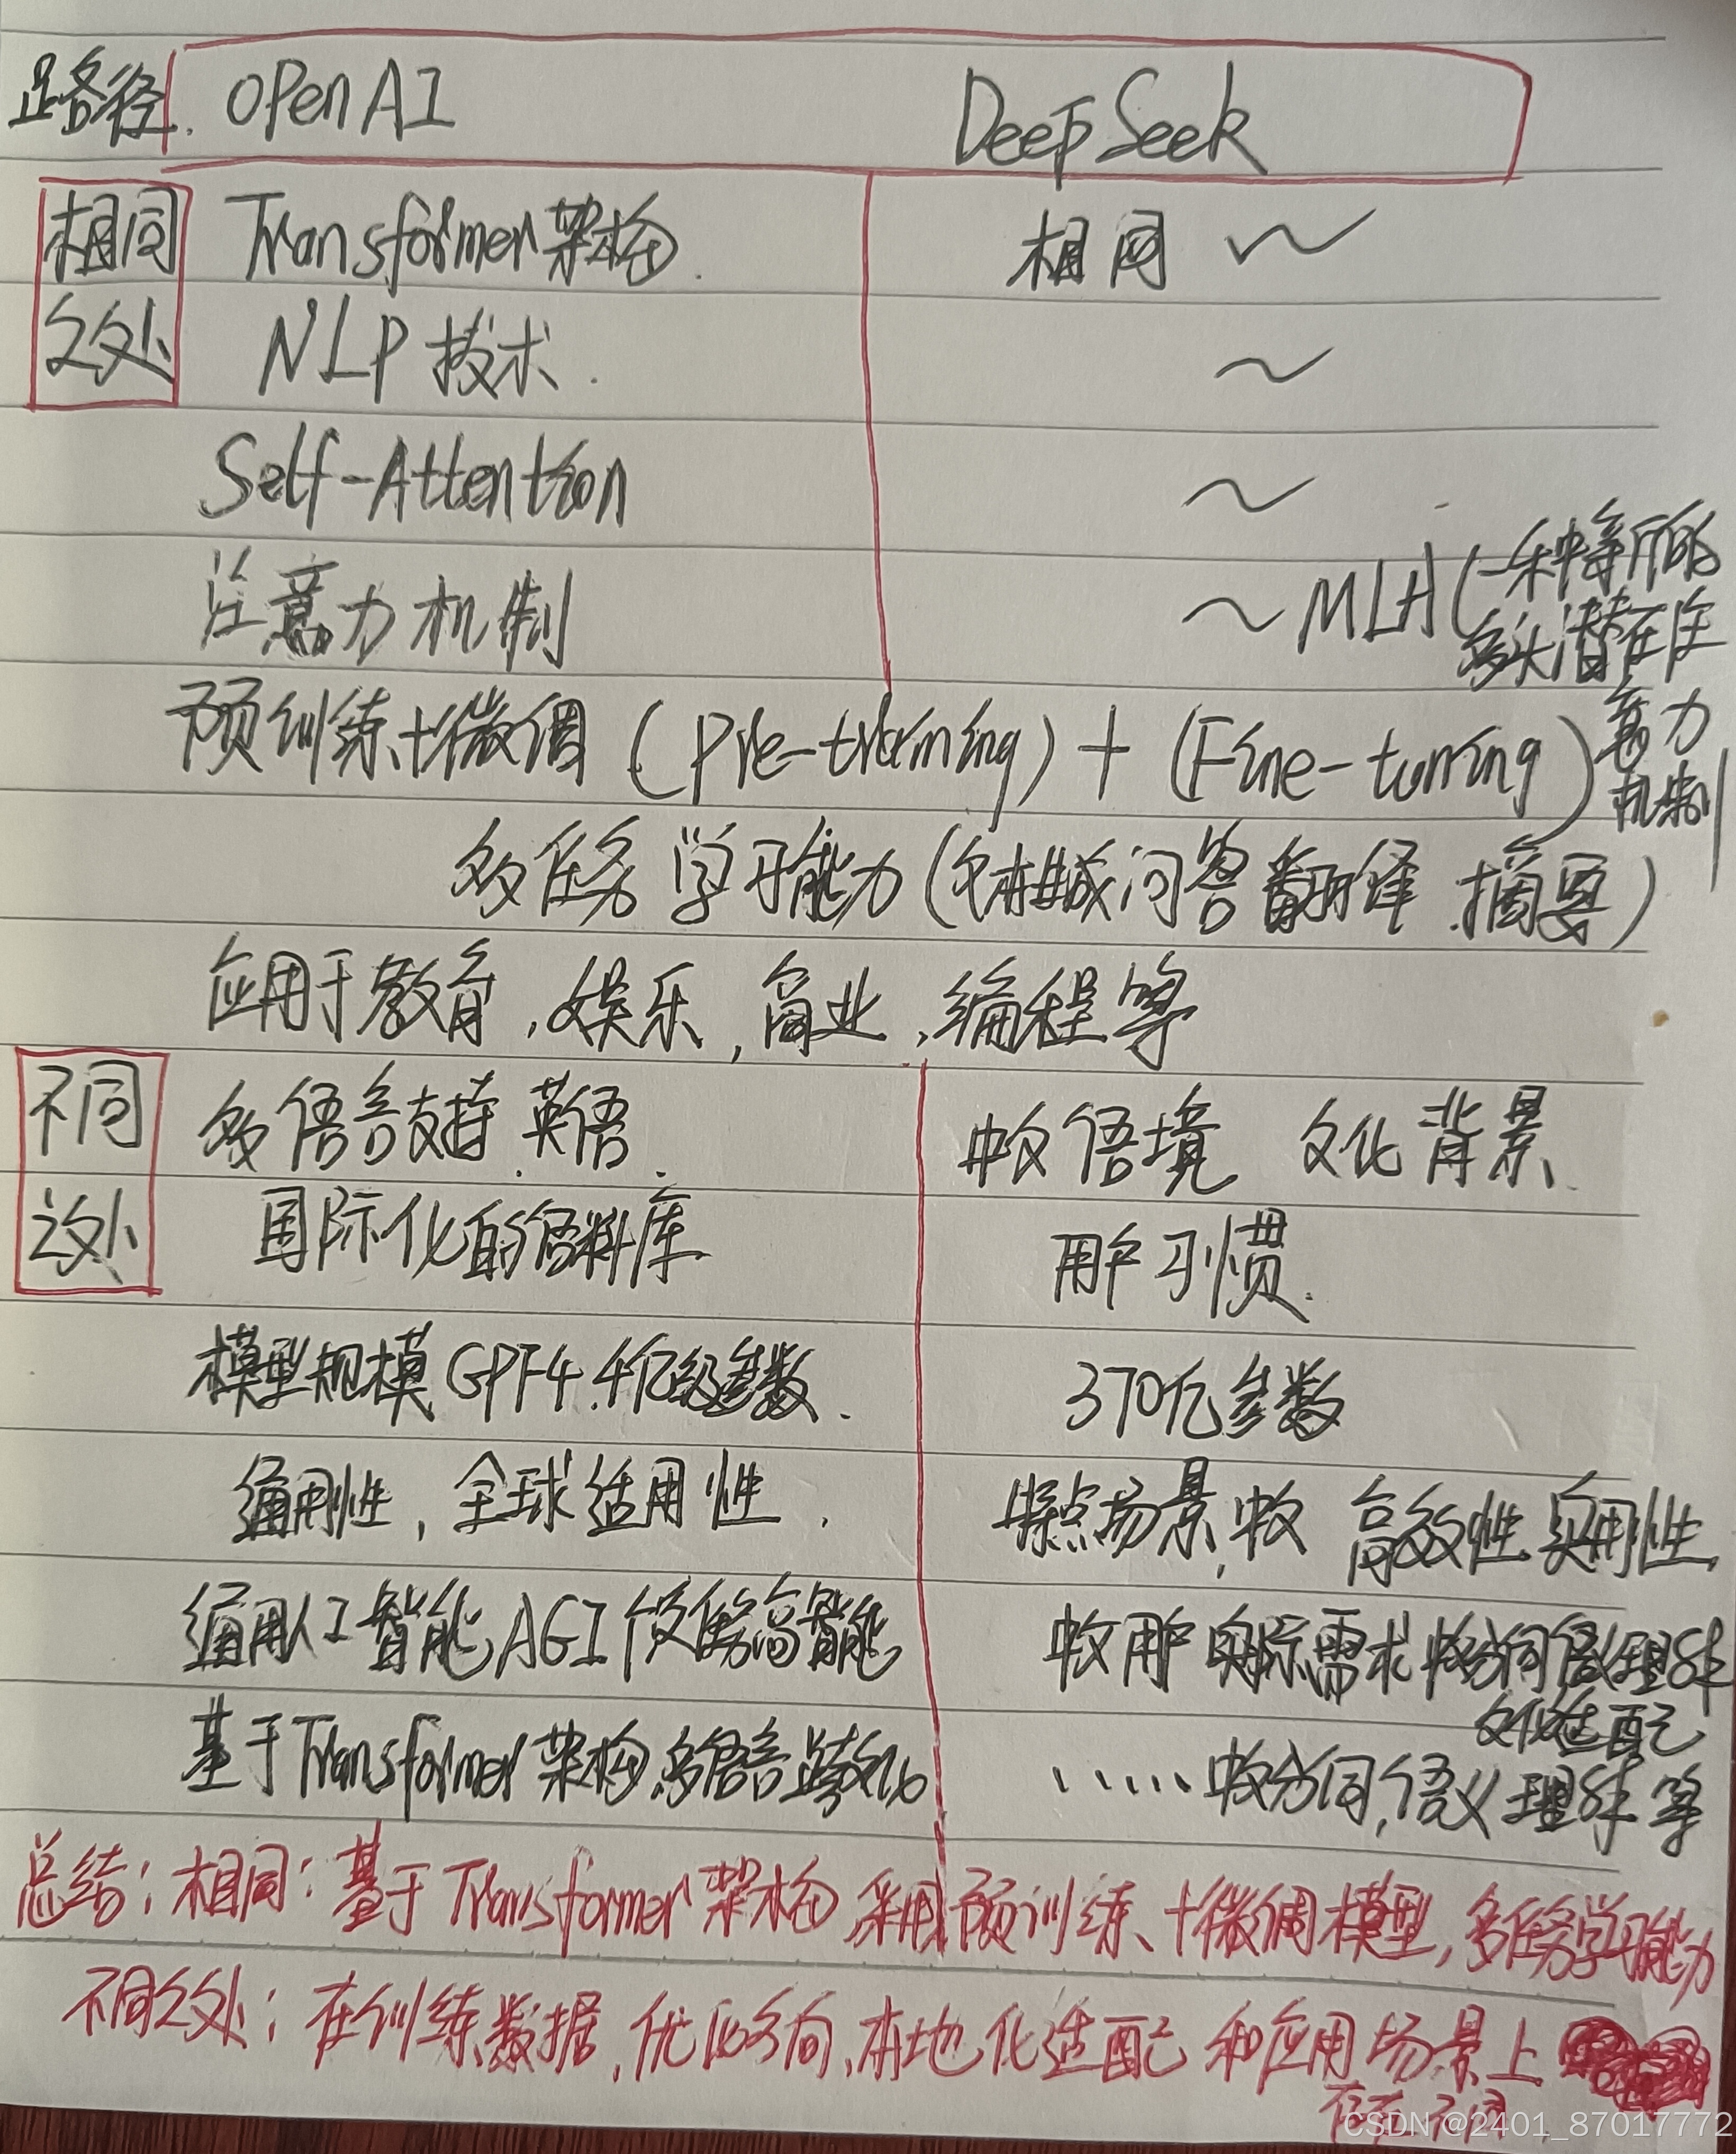 路径. OPenAI DeepSeek
相同 Transformer架构. 相同 ~
之处 NLP技术. ~
Self-Attention ~
注意力机制 ~ MLA(一种新的
多头潜在注
意力
机制
预训练+微调 (Pre-training) + (Fine-tuning)
多任务 学习能力(文本生成问答翻译.摘要)
应用于教育,娱乐,商业,编程等
不同 多语言支持.英语. 中文语境 文化背景.
之处 国际化的语料库 用户习惯.
模型规模GPT4.4亿级参数. 370亿参数
通用性,全球适用性. 特点场景,中文 高效性 实用性.
通用人工智能AGI 高智能 中文用户实际需求 中文分词 语义理解
文化适配
基于Transformer架构.多语言跨文化 ......中文分词,语义理解等
总结:相同:基于Transformer架构 采用预训练、+微调模型,多任务学习能力
不同之处:在训练数据,优化方向,本地化适配和应用场景上
存在不同.
CSDN @2401_87017772